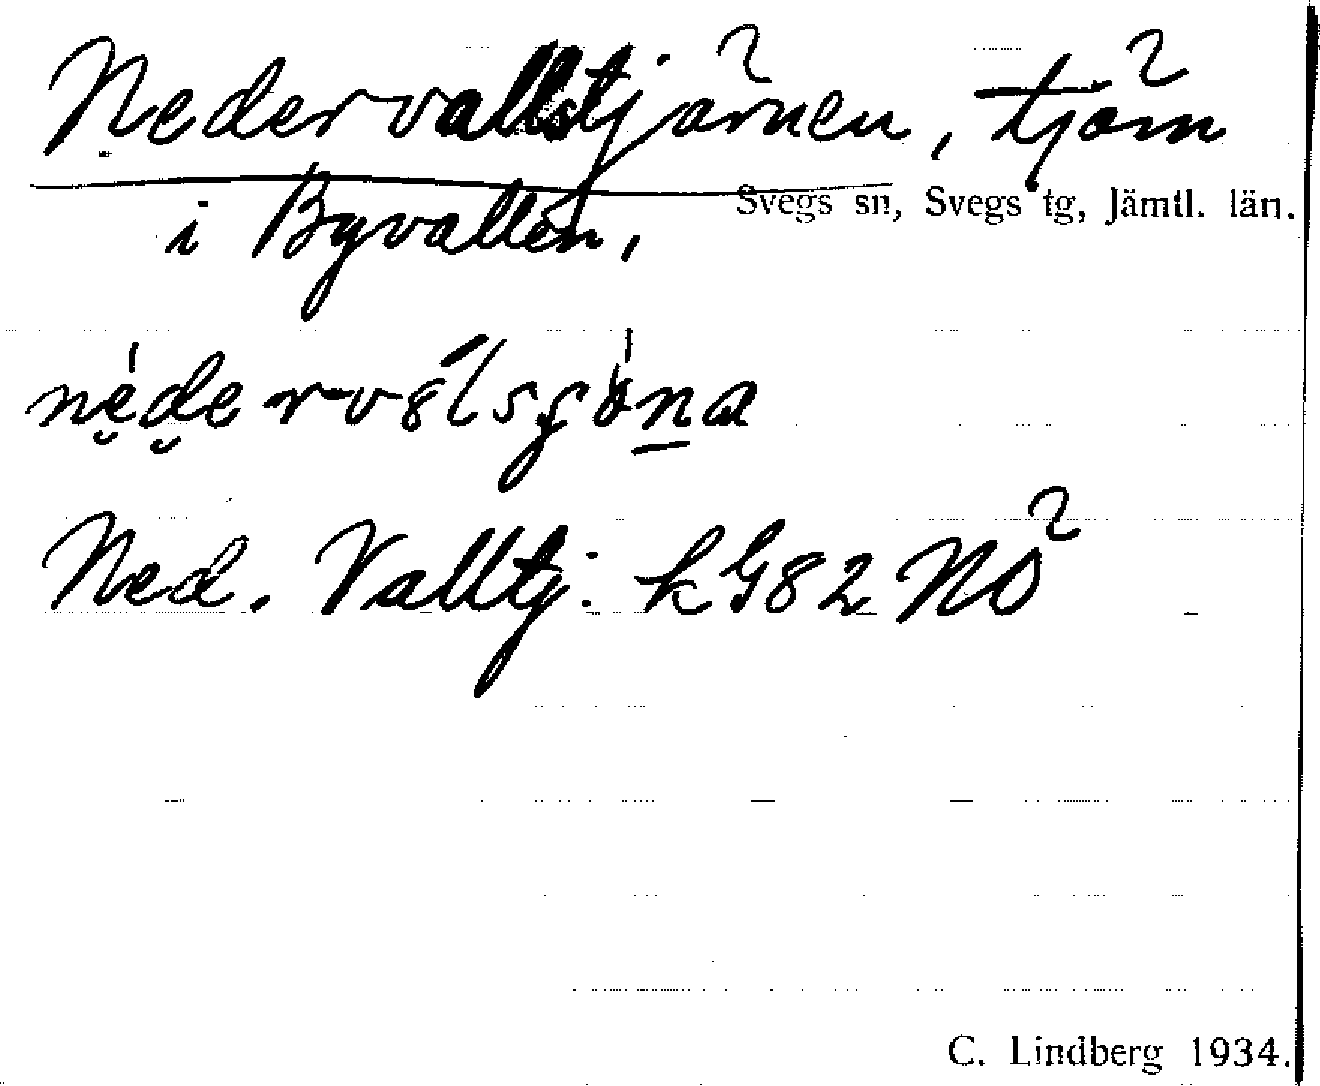 Nedervallstjärnen, tjärn
Svegs sn, Svegs tg, Jämtl. län.
i Byvallen,
Ned. Valltj: k G82 NO
C. Lindberg 1934.